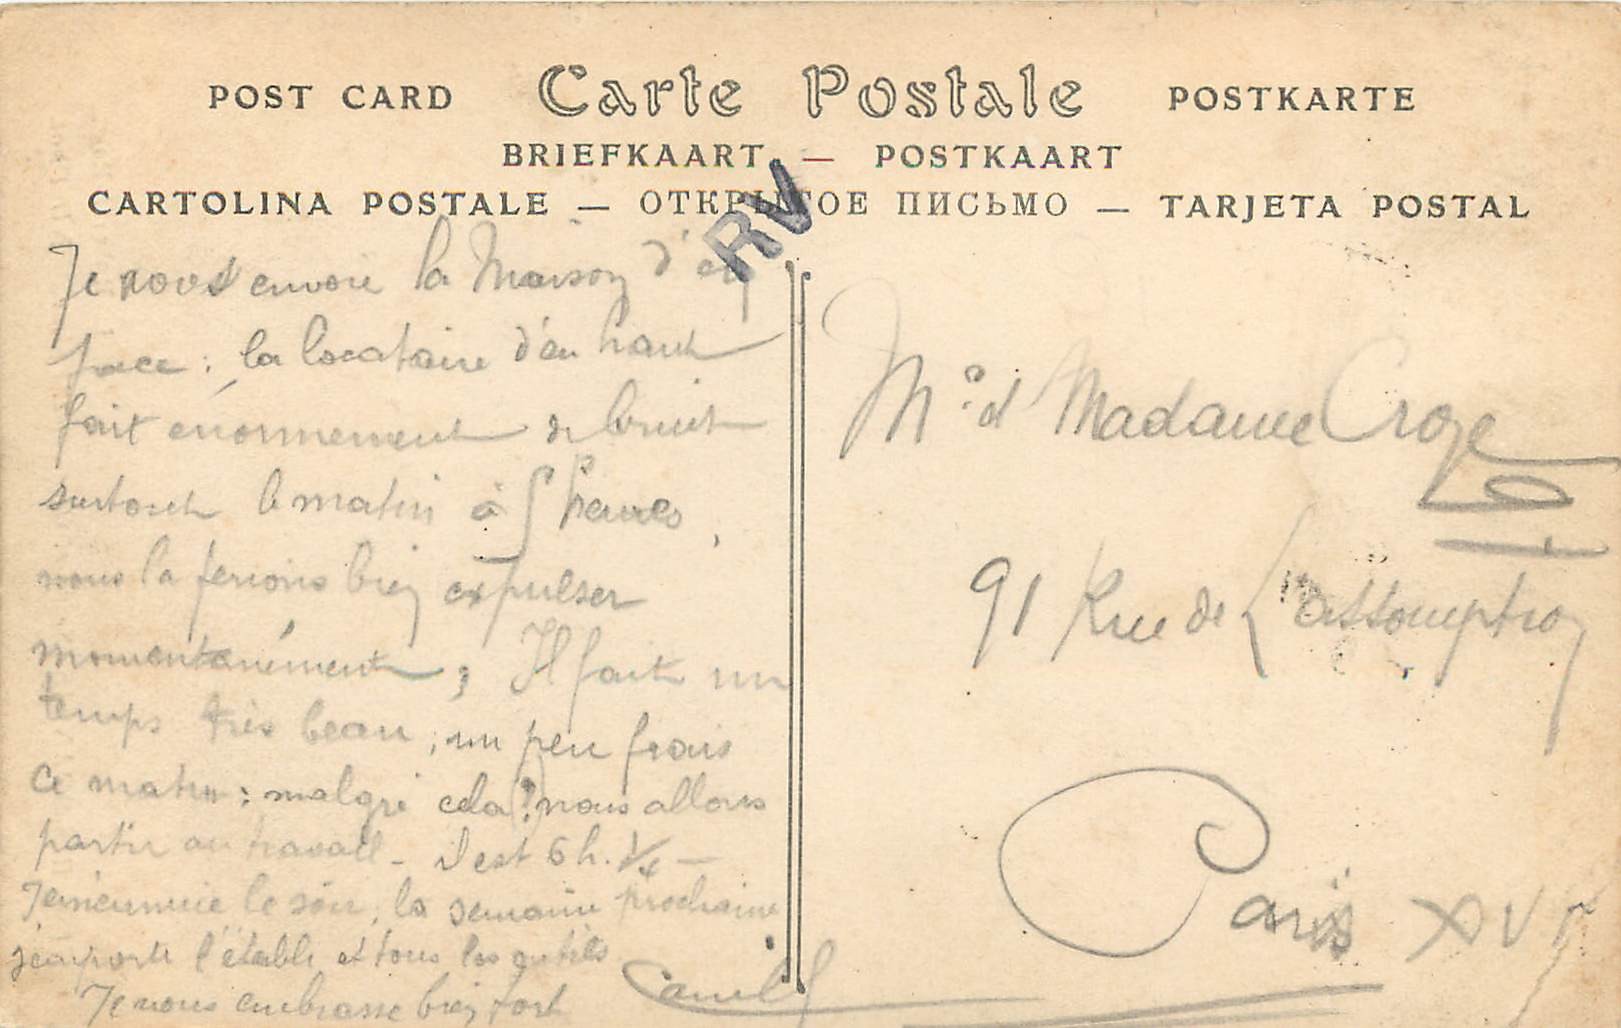 POST CARD Carte Postale POSTKARTE
BRIEFKAART — POSTKAART
CARTOLINA POSTALE — ОТКРЫТОЕ ПИСЬМО — TARJETA POSTAL
RV
Je vous envoie la Maison d'en
face : la locataire d'en haut
fait énormement de bruit
surtout le matin à 5 heures,
nous la ferions bien expulser
momentanément ; Il fait un
temps très beau, un peu frais
ce matin : malgré cela nous allons
partir au travail - il est 6 h. 1/4 -
Je m'ennuie le soir, la semaine prochaine
j'emporte l'établi et tous les outils
Je vous embrasse bien fort
Camille
Mr et Madame Croze
91 Rue de L'assomption
Paris XVI